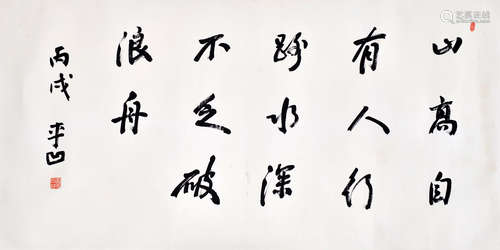 山高自
有人行
路水深
不乏破
浪舟
丙戌 平凹